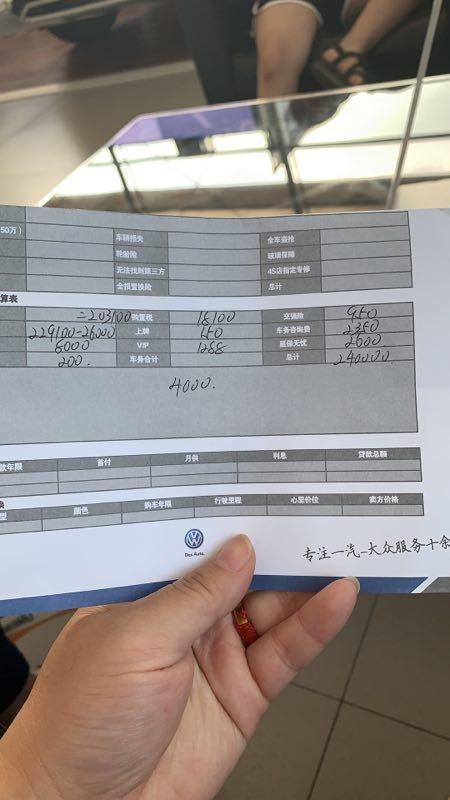 50万）
车辆损失
全车盗抢
轮胎险
玻璃保障
无法找到第三方
4S店指定专修
全损置换险
总计
算表
=203100 购置税 18100 交强险 950
229100-26000 上牌 150 车务咨询费 2350
8000 VIP 1288 延保无忧 2600
200. 车务合计 总计 240000
4000.
款年限 首付 月供 利息 贷款总额
换
型 颜色 购车年限 行驶里程 心里价位 卖方价格
Das Auto.
专注一汽-大众服务十余